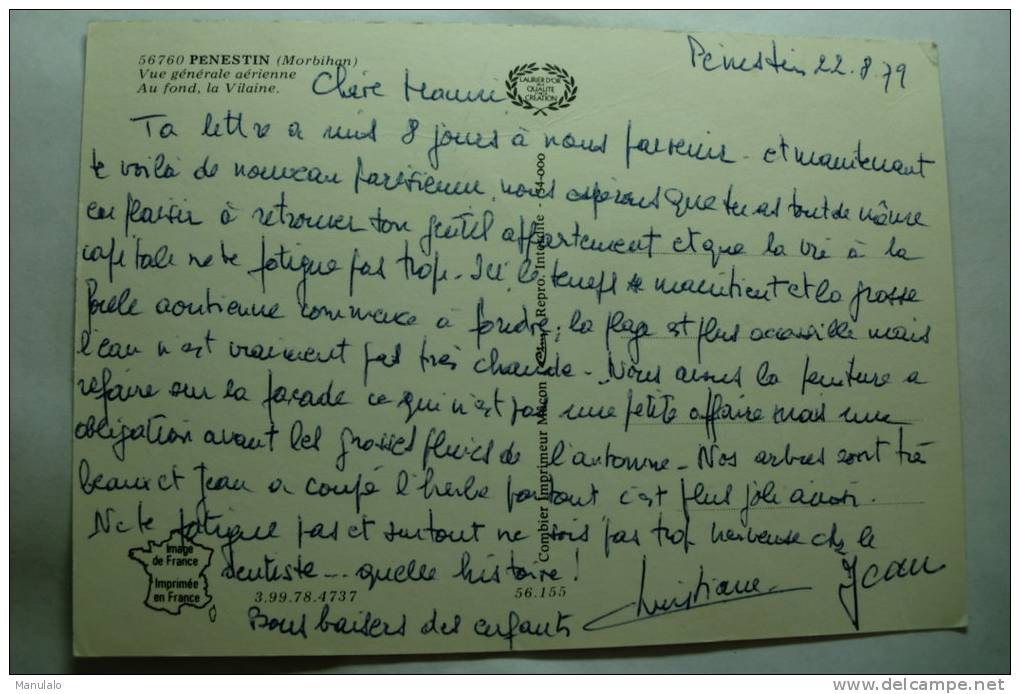 56760 PENESTIN (Morbihan)
Vue générale aérienne
Au fond, la Vilaine.
LAURIER D'OR
DE LA
QUALITÉ
CRÉATION
Pénestin 22.8.79
Chère
Ta lettre a mis 8 jours à nous parvenir - et maintenant
te voilà de nouveau parisienne, nous espérons que tu as tout de même
eu plaisir à retrouver ton gentil appartement et que la vie à la
capitale ne te fatigue pas trop - Ici, le temps se maintient et la grosse
foule aoutienne commence à fondre ; la plage est plus accessible mais
l'eau n'est vraiment pas très chaude - Nous avons la peinture a
refaire sur la façade ce qui n'est pas une petite affaire mais une
obligation avant les grosses pluies de l'automne - Nos arbres sont très
beaux et Jean a coupé l'herbe partout c'est plus joli ainsi.
Ne te fatigue pas et surtout ne sois pas trop nerveuse chez le
dentiste ... quelle histoire !
Christiane Jean
Bons baisers des enfants
Image
de France
Imprimée
en France
3.99.78.4737
56.155
Combier Imprimeur Macon Repro. Interdite - 54-000
Manulalo
www.delcampe.net